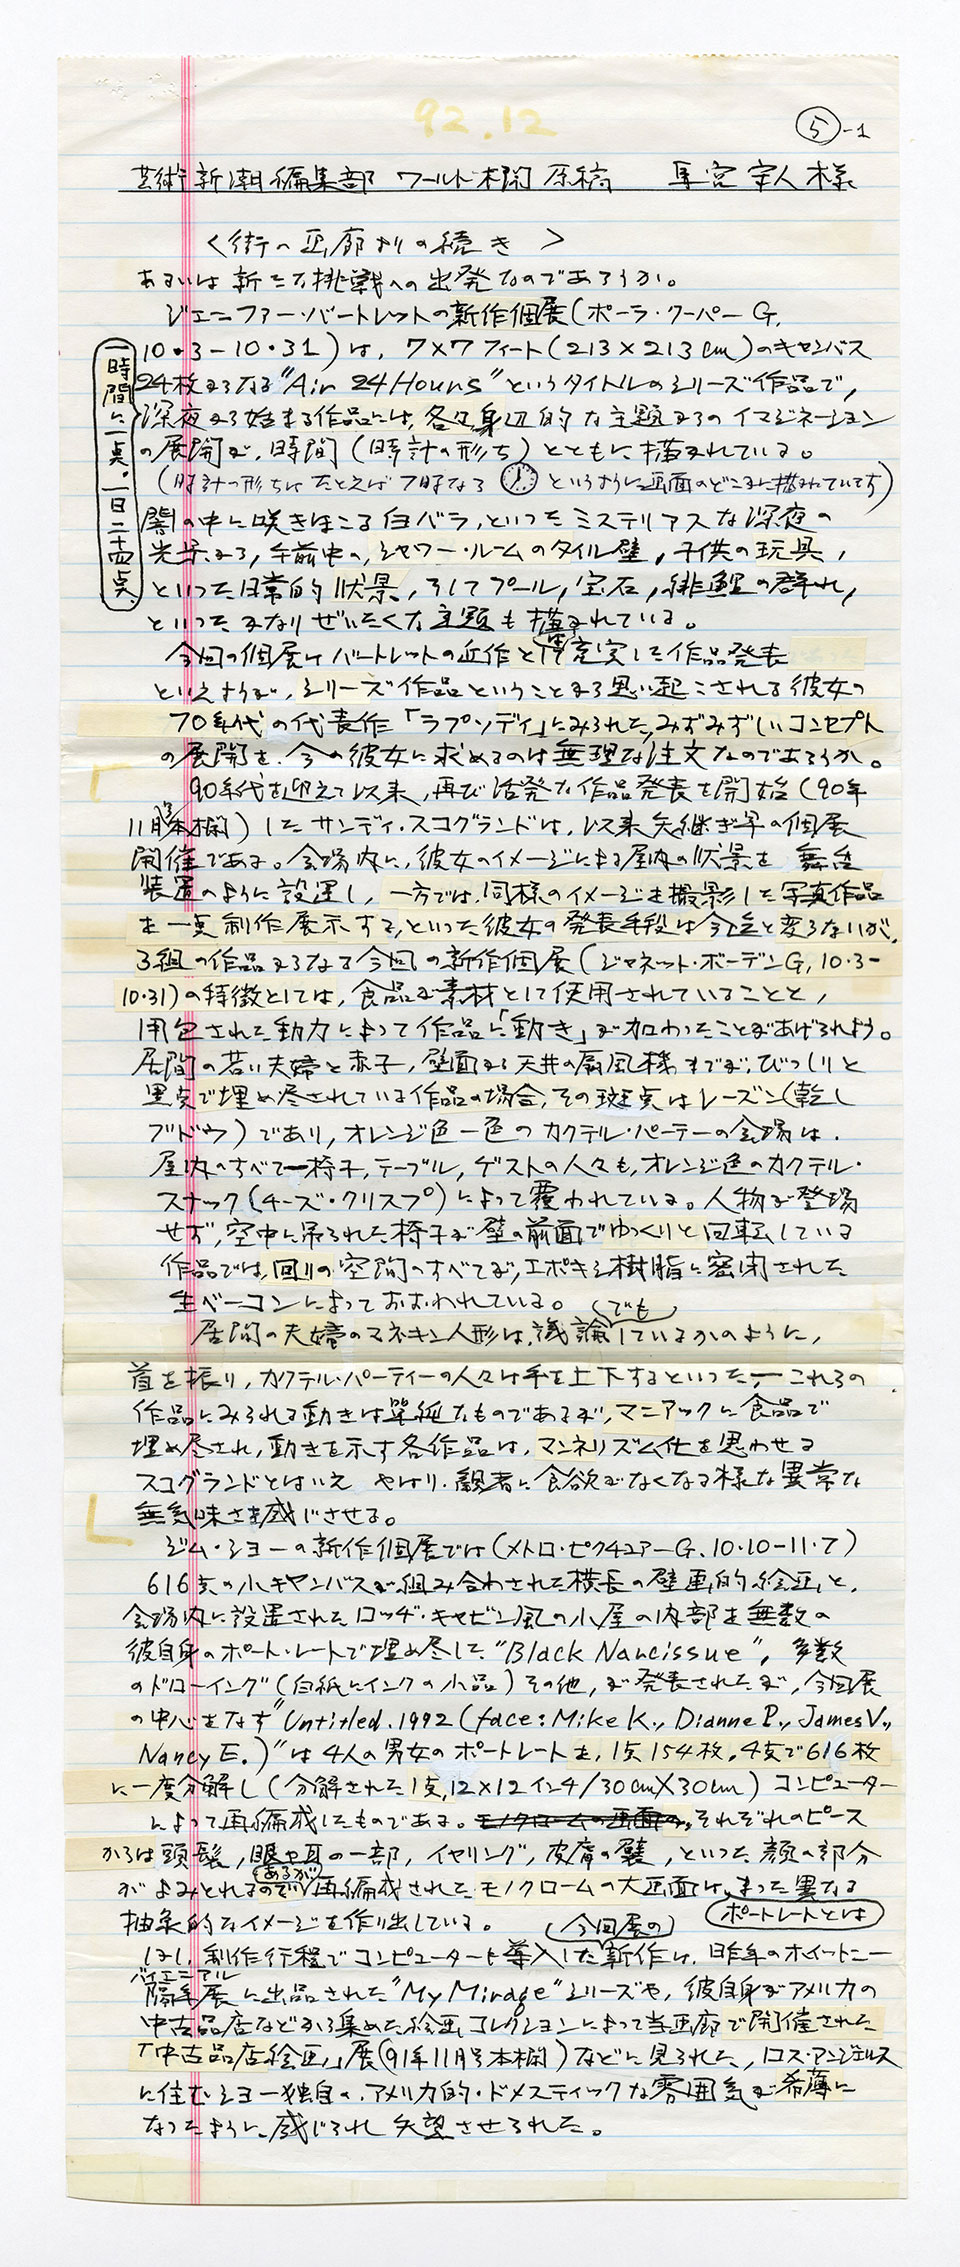 92.12
⑤-1
芸術新潮編集部 ワールド本欄原稿 馬宮宰人様
〈街の画廊よりの続き〉
あるいは新たな挑戦への出発なのであろうか。
ジェニファー・バートレットの新作個展(ポーラ・クーパーG,
10・3-10・31)は、7×7フィート(213×213cm)のキャンバス
24枚からなる"Air 24 Hours"というタイトルのシリーズ作品で、
一時間に一点。一日二十四点。
深夜から始まる作品には、各々身辺的な主題からのイマジネーション
の展開が、時間(時計の形ち)とともに描かれている。
(時計の形ちはたとえば7時なら というように画面のどこかに描かれています)
闇の中に咲きほこる白バラ,といったミステリアスな深夜の
光景から,午前中の,シャワー・ルームのタイル壁,子供の玩具,
といった日常的状景,そしてプール,宝石,緋鯉の群れ,
といったかなりぜいたくな主題も描かれている。
今回の個展はバートレットの近作と 充実した作品発表
といえようが,シリーズ作品ということから思い起こされる彼女の
70年代の代表作「ラプソディ」にみられた,みずみずしいコンセプト
の展開を、今の彼女に求めるのは無理な注文なのであろうか。
90年代を迎えて以来,再び活発な作品発表を開始(90年
11月号本欄)したサンディ・スコグランドは,以来矢継ぎ早の個展
開催である。会場内に,彼女のイメージによる屋内の状景を 舞台
装置のように設置し,一方では,同様のイメージを撮影した写真作品
を一点制作展示する,といった彼女の発表手段は今迄と変らないが,
3組の作品からなる今回の新作個展(ジャネット・ボーデンG,10・3-
10・31)の特徴としては,食品が素材として使用されていることと,
内包された動力によって作品に「動き」が加わったことがあげられよう。
居間の若い夫婦と赤子,壁面から天井の扇風機までが,びっしりと
黒点で埋め尽されている作品の場合,その斑点はレーズン(乾し
ブドウ)であり,オレンジ色一色のカクテル・パーテーの会場は.
屋内のすべて―椅子,テーブル,ゲストの人々も,オレンジ色のカクテル・
スナック(チーズ・クリスプ)によって覆われている。人物が登場
せず,空中に吊られた椅子が壁の前面でゆっくりと回転している
作品では,回りの空間のすべてが,エポキシ樹脂に密閉された
生ベーコンによっておおわれている。
居間の夫婦のマネキン人形は,議論でもしているかのように,
首を振り,カクテル・パーティーの人々は手を上下するといった,―これらの
作品にみられる動きは単純なものであるが,マニアックに食品で
埋め尽され,動きを示す各作品は,マンネリズム化を思わせる
スコグランドとはいえ やはり.観者に食欲がなくなる様な異常な
無気味さを感じさせる。
ジム・ショーの新作個展では(メトロ・ピクチュアーG.10・10-11・7)
616点の小キャンバスが組み合わされた横長の壁画的絵画と,
会場内に設置されたロッヂ・キャビン風の小屋の内部を無数の
彼自身のポート・レートで埋め尽した"Black Narcissue",多数
のドローイング(白紙にインクの小品)その他,が発表されたが,今回展
の中心をなす"Untitled.1992(face:Mike K., Dianne P., James V.,
Nancy E.)"は4人の男女のポートレートを,1点154枚,4点で616枚
に一度分解し(分解された1点,12×12インチ/30cm×30cm)コンピューター
によって再編成したものである。それぞれのピース
からは頭髪,眼や耳の一部,イヤリング,皮膚の襞,といった顔の部分
がよみとれるのであるが 再編成されたモノクロームの大画面は,ポートレートとはまった異なる
抽象的なイメージを作り出している。
しかし,制作行程でコンピューターを導入した今回展の新作は,昨年のホイートニー
隔年展バイエニアルに出品された"My Mirage"シリーズや,彼自身がアメリカの
中古品店などから集めた絵画コレクションによって当画廊で開催された
「中古品店絵画」展(91年11月号本欄)などに見られた,ロス・アンジェルス
に住むショー独自の.アメリカ的・ドメスティックな雰囲気が希薄に
なったように感じられ 失望させられた。